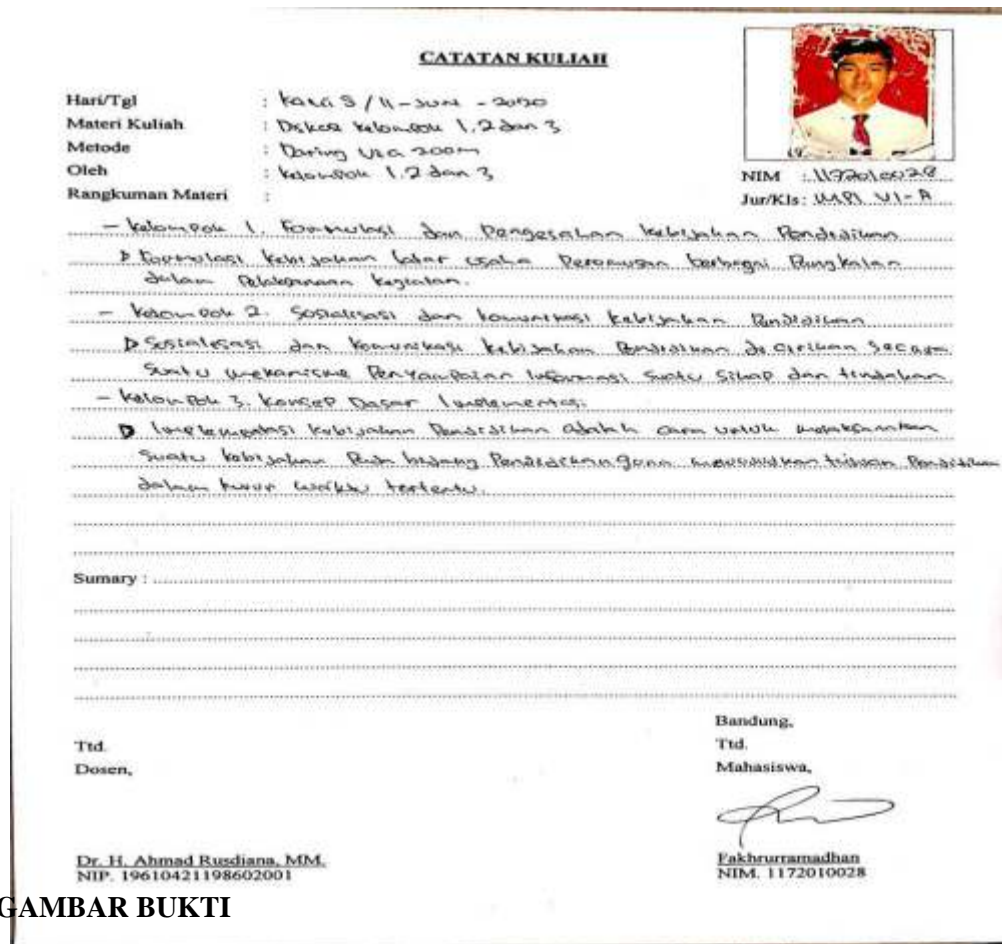 CATATAN KULIAH
Hari/Tgl : Kamis / 11 - Juni - 2020
Materi Kuliah : Diskusi kelompok 1, 2 dan 3
Metode : Daring Via Zoom
Oleh : kelompok 1, 2 dan 3
Rangkuman Materi :
NIM : 1172010028
Jur/Kls : MPI VI-A
- kelompok 1. Formulasi dan Pengesahan kebijakan Pendidikan
Formulasi kebijakan usaha berbagai
dalam Pelaksanaan kegiatan.
- Kelompok 2. Sosialisasi dan komunikasi kebijakan Pendidikan
Sosialisasi dan komunikasi kebijakan Pendidikan di artikan secara
suatu mekanisme Penyampaian informasi suatu sikap dan tindakan
- Kelompok 3. Konsep Dasar Implementasi
Implementasi kebijakan Pendidikan adalah cara untuk melaksanakan
suatu kebijakan Pada bidang Pendidikan guna mewujudkan tujuan Pendidikan
dalam kurun waktu tertentu.
Sumary :
Bandung,
Ttd. Ttd.
Dosen, Mahasiswa,
Dr. H. Ahmad Rusdiana, MM. Fakhrurramadhan
NIP. 19610421198602001 NIM. 1172010028
GAMBAR BUKTI